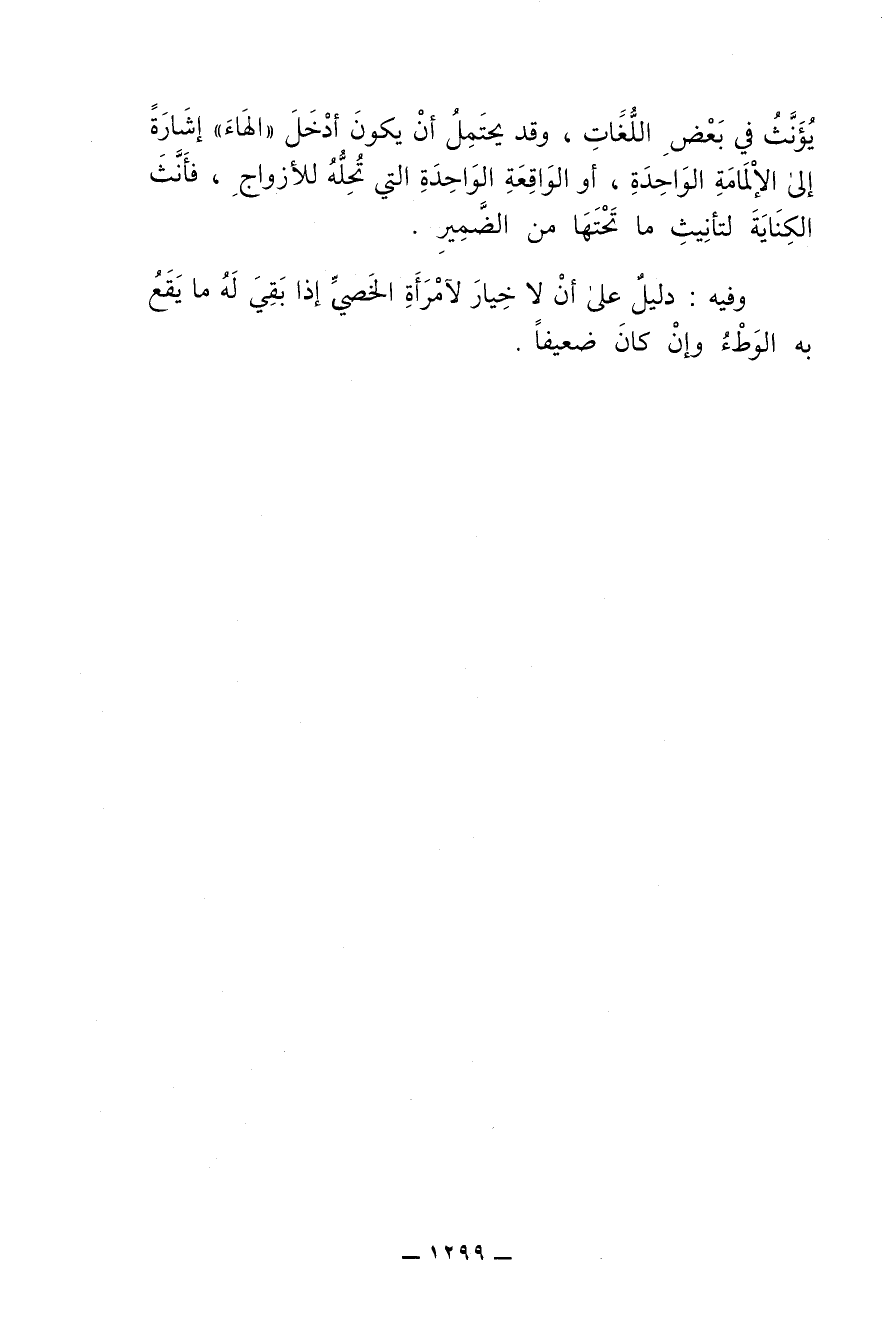 يُؤَنَّثُ في بَعْضِ اللُّغَاتِ ، وقد يحتَمِلُ أنْ يكونَ أدْخَلَ «الهَاءَ» إشَارَةً
إلىٰ الإلْمَامَةِ الوَاحِدَةِ ، أو الوَاقِعَةِ الوَاحِدَةِ التي تُحِلُّهُ للأزواجِ ، فأَنَّثَ
الكِنَايَةَ لتأنِيثِ ما تَحْتَهَا من الضَّمِيرِ .
وفيه : دليلٌ علىٰ أنْ لا خِيارَ لآمْرَأَةِ الخَصيِّ إذا بَقِيَ لَهُ ما يَقَعُ
به الوَطْءُ وإنْ كانَ ضعيفاً .
ـ ١٢٩٩ ـ